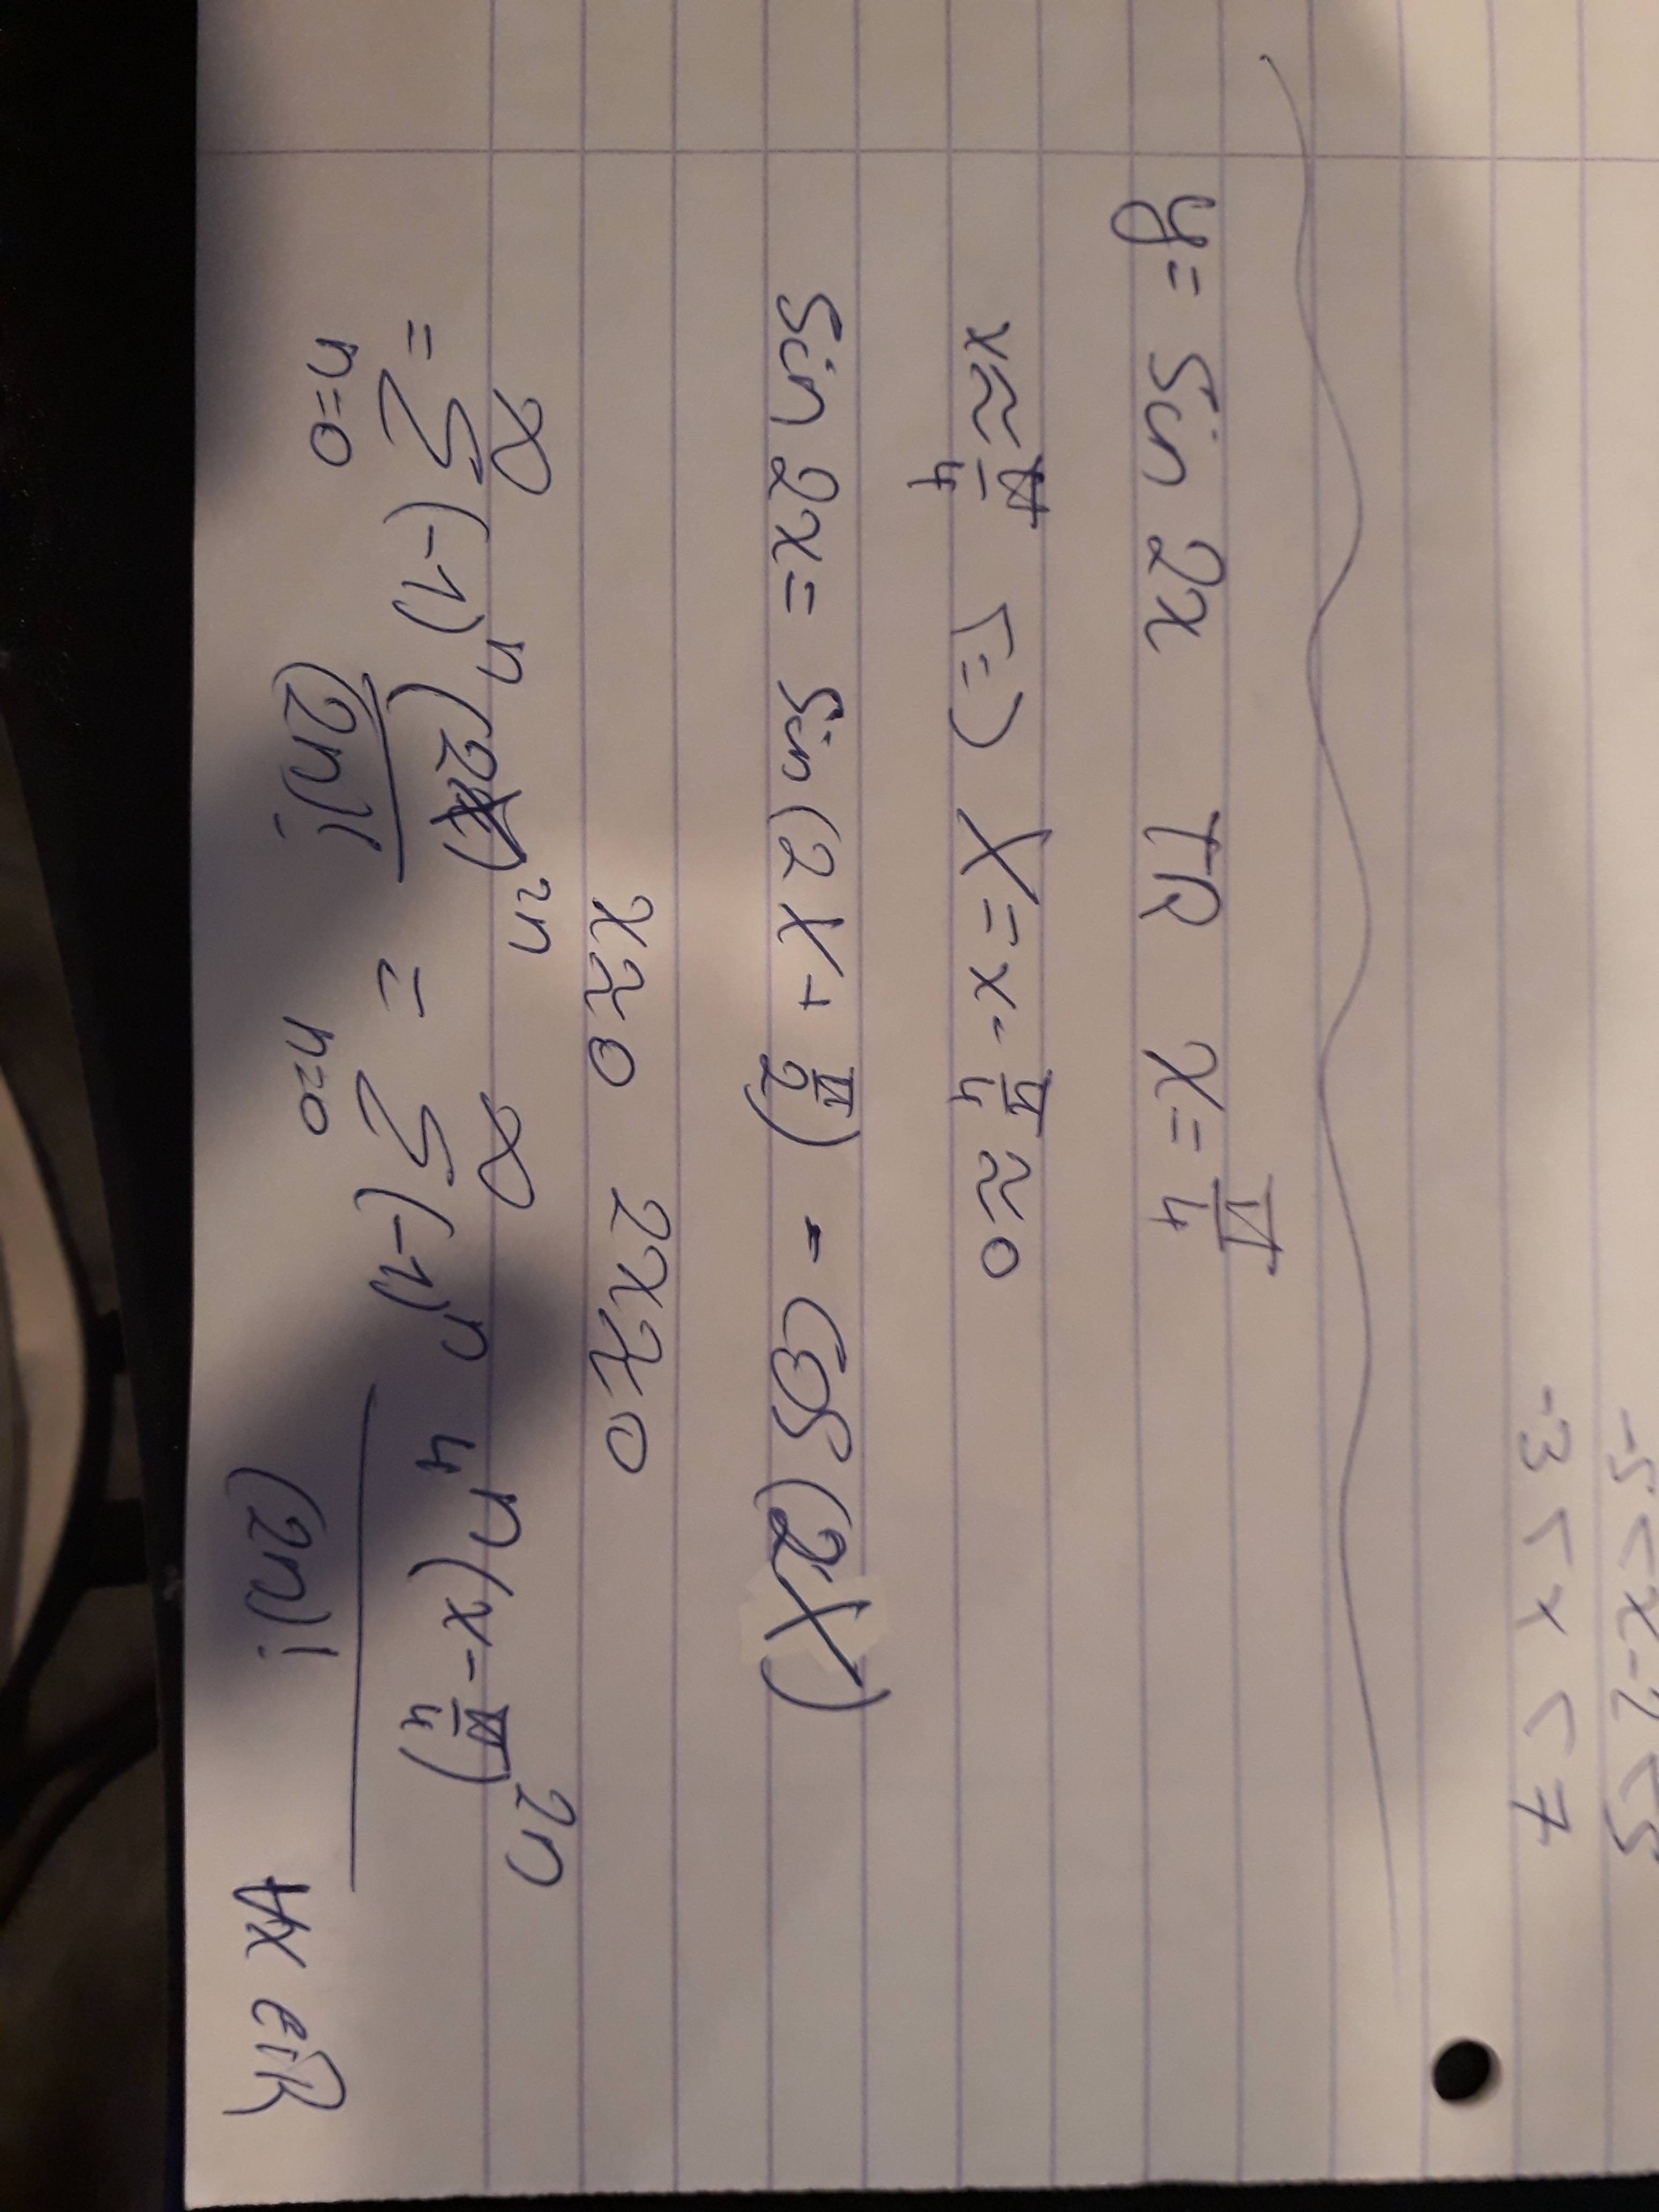 -5 < x - 2 < 5
-3 < x < 7
y = sin 2x TR x = π/4
x ≈ π/4 <=> X = x - π/4 ≈ 0
sin 2x = sin(2X + π/2) = cos(2X)
x ≈ 0 2x ≈ 0
= ∑_{n=0}^{∞} (-1)^n (2X)^{2n}/(2n)! = ∑_{n=0}^{∞} (-1)^n 4^n (x - π/4)^{2n}/(2n)! ∀x ∈ ℝ